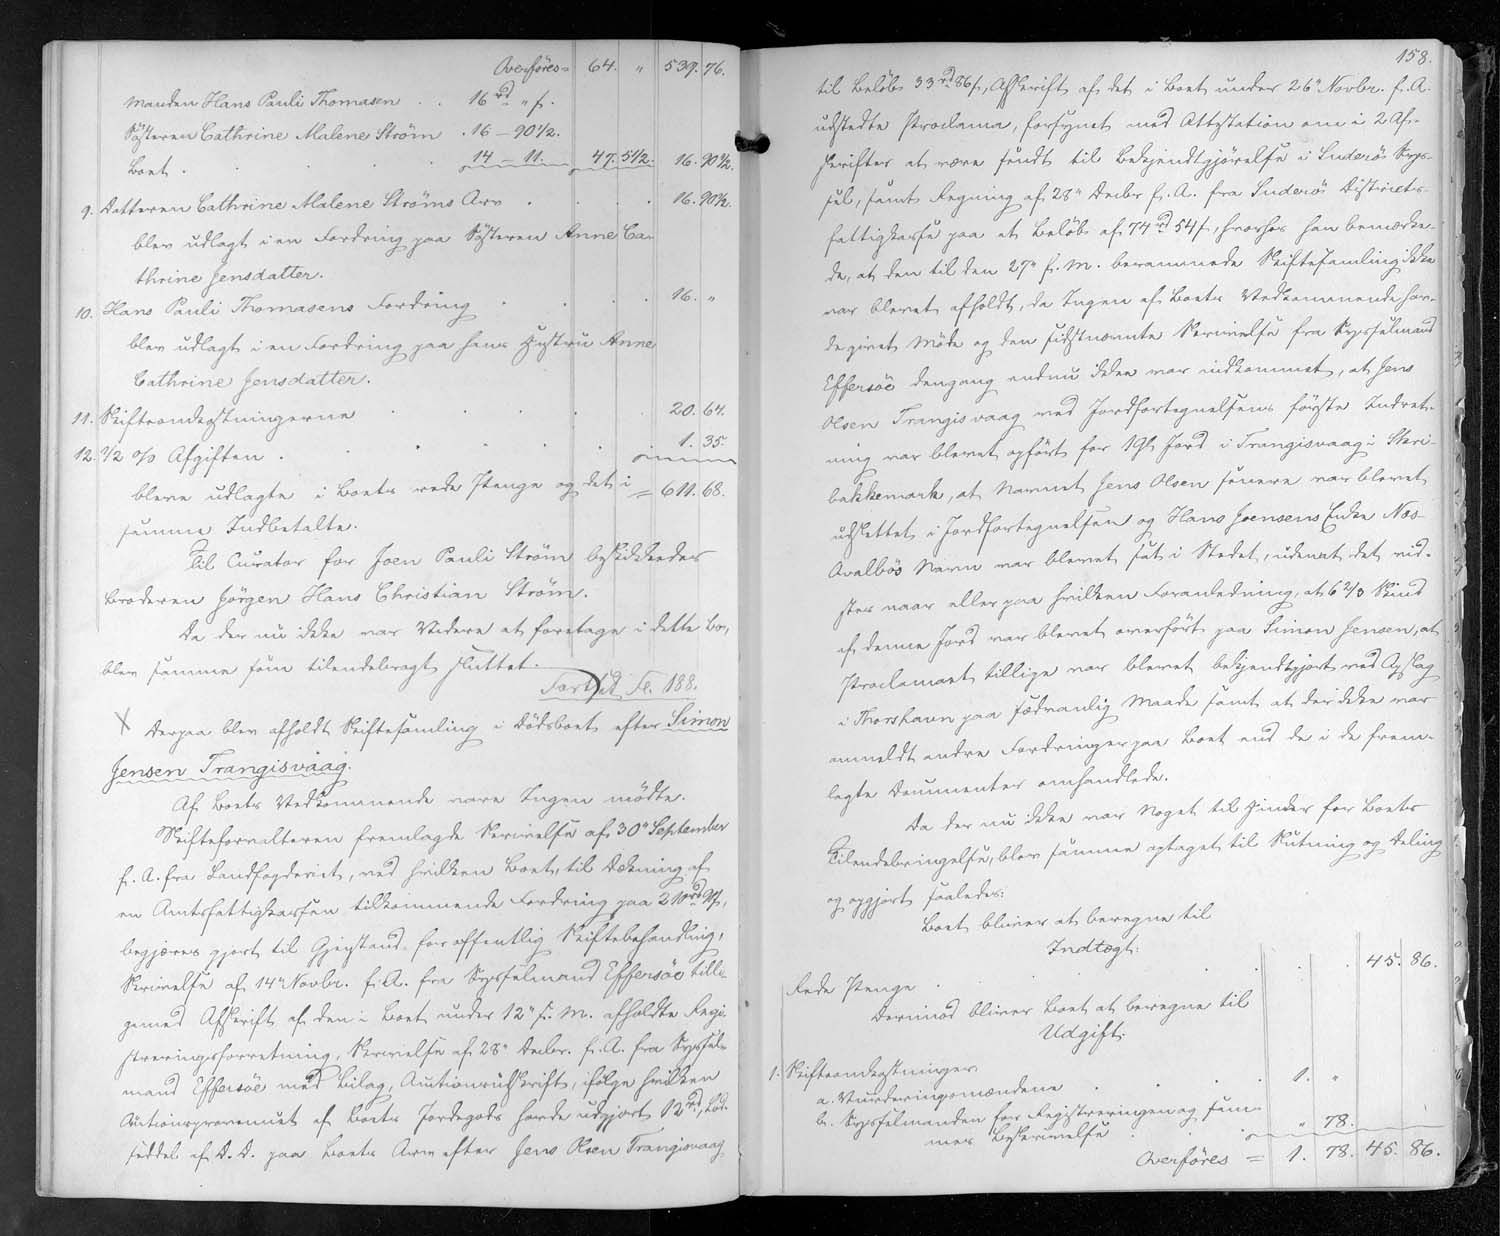 Overføres = 64. " 539. 76.
Manden Hans Pauli Thomasen . . 16 rd " s.
Søsteren Cathrine Malene Strøm . 16 – 90½.
Boet . . . 14 – 11. 47. 5½. 16. 90½.
9. Datteren Cathrine Malene Strøms Arv . . . . 16. 90½.
blev udlagt i en Fordring paa Søsteren Anne Ca-
thrine Jensdatter.
10. Hans Pauli Thomasens Fordring . . . . 16. "
blev udlagt i en Fordring paa hans Hustru Anne
Cathrine Jensdatter.
11. Skifteomkostningerne . . . . 20. 64.
12. ½ o/o Afgiften . . . . 1. 35.
bleve udlagte i Boets rede Penge og det i = 611. 68.
samme Indbetalte.
Til Curator for Joen Pauli Strøm beskikkedes
Broderen Jørgen Hans Christian Strøm.
Da der nu ikke var Videre at foretage i dette Bo,
blev samme som tilendebragt sluttet.
Forts. Fol. 188.
X Derpaa blev afholdt Skiftesamling i Dødsboet efter Simon
Jensen Trangisvaag.
Af Boets Vedkommende vare Ingen mødte.
Skifteforvalteren fremlagde Skrivelse af 30" September
f. A. fra Landfogderiet, ved hvilken Boet, til Dækning af
en Amtsfattigkassen tilkommende Fordring paa 210 rd
begjæres gjort til Gjenstand for offentlig Skiftebehandling,
Skrivelse af 14" Novbr. f. A. fra Sysselmand Effersøe tilli-
gemed Afskrift af den i Boet under 12" s. M. afholdte Regi-
streringsforretning, Skrivelse af 28" Decbr. f. A. fra Syssel-
mand Effersøe med Bilag, Auctionsudskrift, ifølge hvilken
Auctionsprovenuet af Boets Jordegods havde udgjort 12 rd,
seddel af D. D. paa Boets Arv efter Jens Olsen Trangisvaag
158.
til Beløb 33 rd 86 s, Afskrift af det i Boet under 26" Novbr. f. A.
udstedte Proclama, forsynet med Attestation om i 2 Af-
skrifter at være sendt til Bekjendtgjørelse i Suderø Sys-
sel, samt Regning af 28" Decbr f. A. fra Suderø Districts-
fattigkasse paa et Beløb af 74 rd 54 s, hvorhos han bemærke-
de, at den til den 27" f. M. berammede Skiftesamling ikke
var blevet afholdt, da Ingen af Boets Vedkommende hav-
de givet Møde og den sidstnævnte Skrivelse fra Sysselmand
Effersøe dengang endnu ikke var indkommet, at Jens
Olsen Trangisvaag ved Jordfortegnelsens første Indret-
ning var blevet opført for 19 Jord i Trangisvaag i
bakkemark, at Navnet Jens Olsen senere var blevet
udslettet i Jordfortegnelsen og Hans Joensens Enke Næs
Qvalbøs Navn var blevet sat i Stedet, uden at det vid-
stes naar eller paa hvilken Foranledning, at 6 2/3 Skind
af denne Jord var blevet overført paa Simon Jensen, at
Proclamaet tillige var blevet bekjendtgjort ved Opslag
i Thorshavn paa sædvanlig Maade samt at der ikke var
anmeldt andre Fordringer paa Boet end de i de frem-
lagte Documenter omhandlede.
Da der nu ikke var Noget til Hinder for Boets
Tilendebringelse, blev samme optaget til Slutning og Deling
og opgjort saaledes:
Boet bliver at beregne til
Indtægt:
Rede Penge . . . . 45. 86.
Derimod bliver Boet at beregne til
Udgift:
1. Skifteomkostninger:
a. Vurderingsmændene . . . . 1. "
b. Sysselmanden for Registreringen og sam-
mes Beskrivelse . . . " 78.
Overføres = 1. 78. 45. 86.